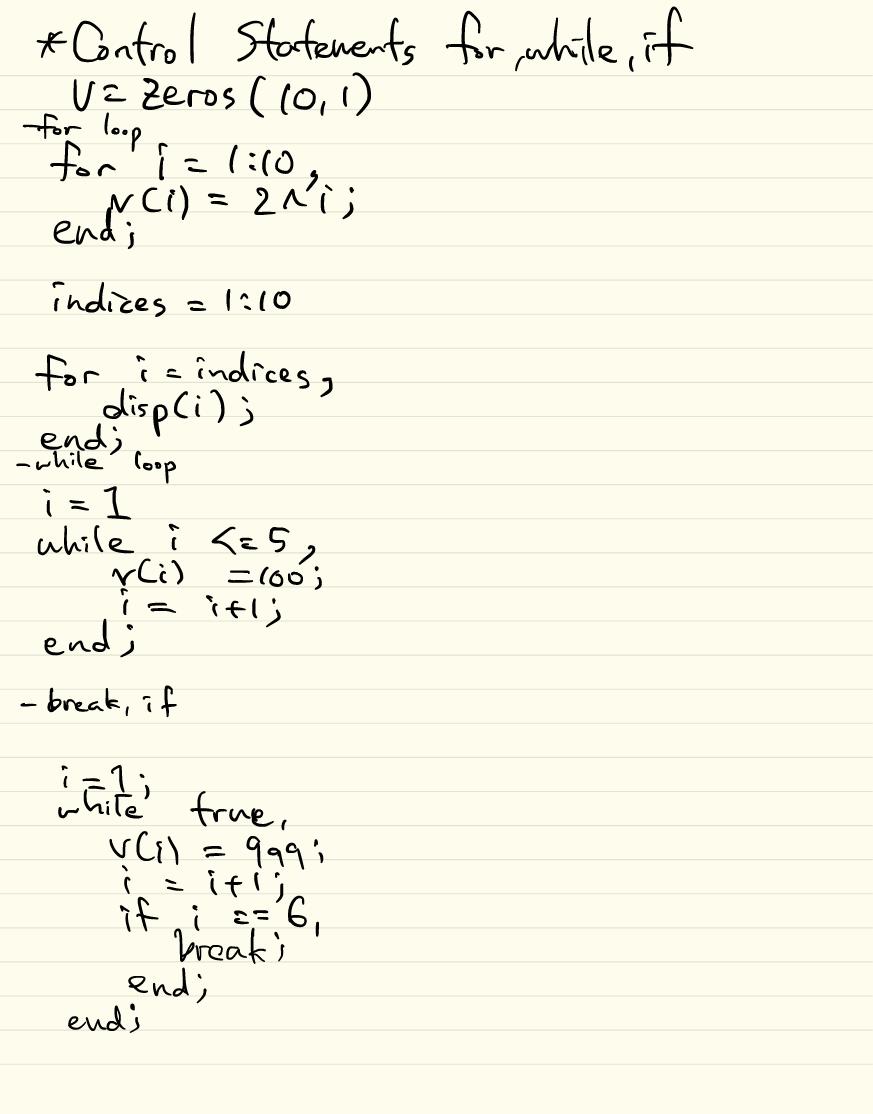 *Control Statements for, while, if
v = zeros(10,1)
-for loop
for i = 1:10,
v(i) = 2^i;
end;
indices = 1:10
for i = indices,
disp(i);
end;
-while loop
i = 1
while i <= 5,
v(i) = 100;
i = i+1;
end;
- break, if
i = 1;
while true,
v(i) = 999;
i = i+1;
if i == 6,
break;
end;
end;